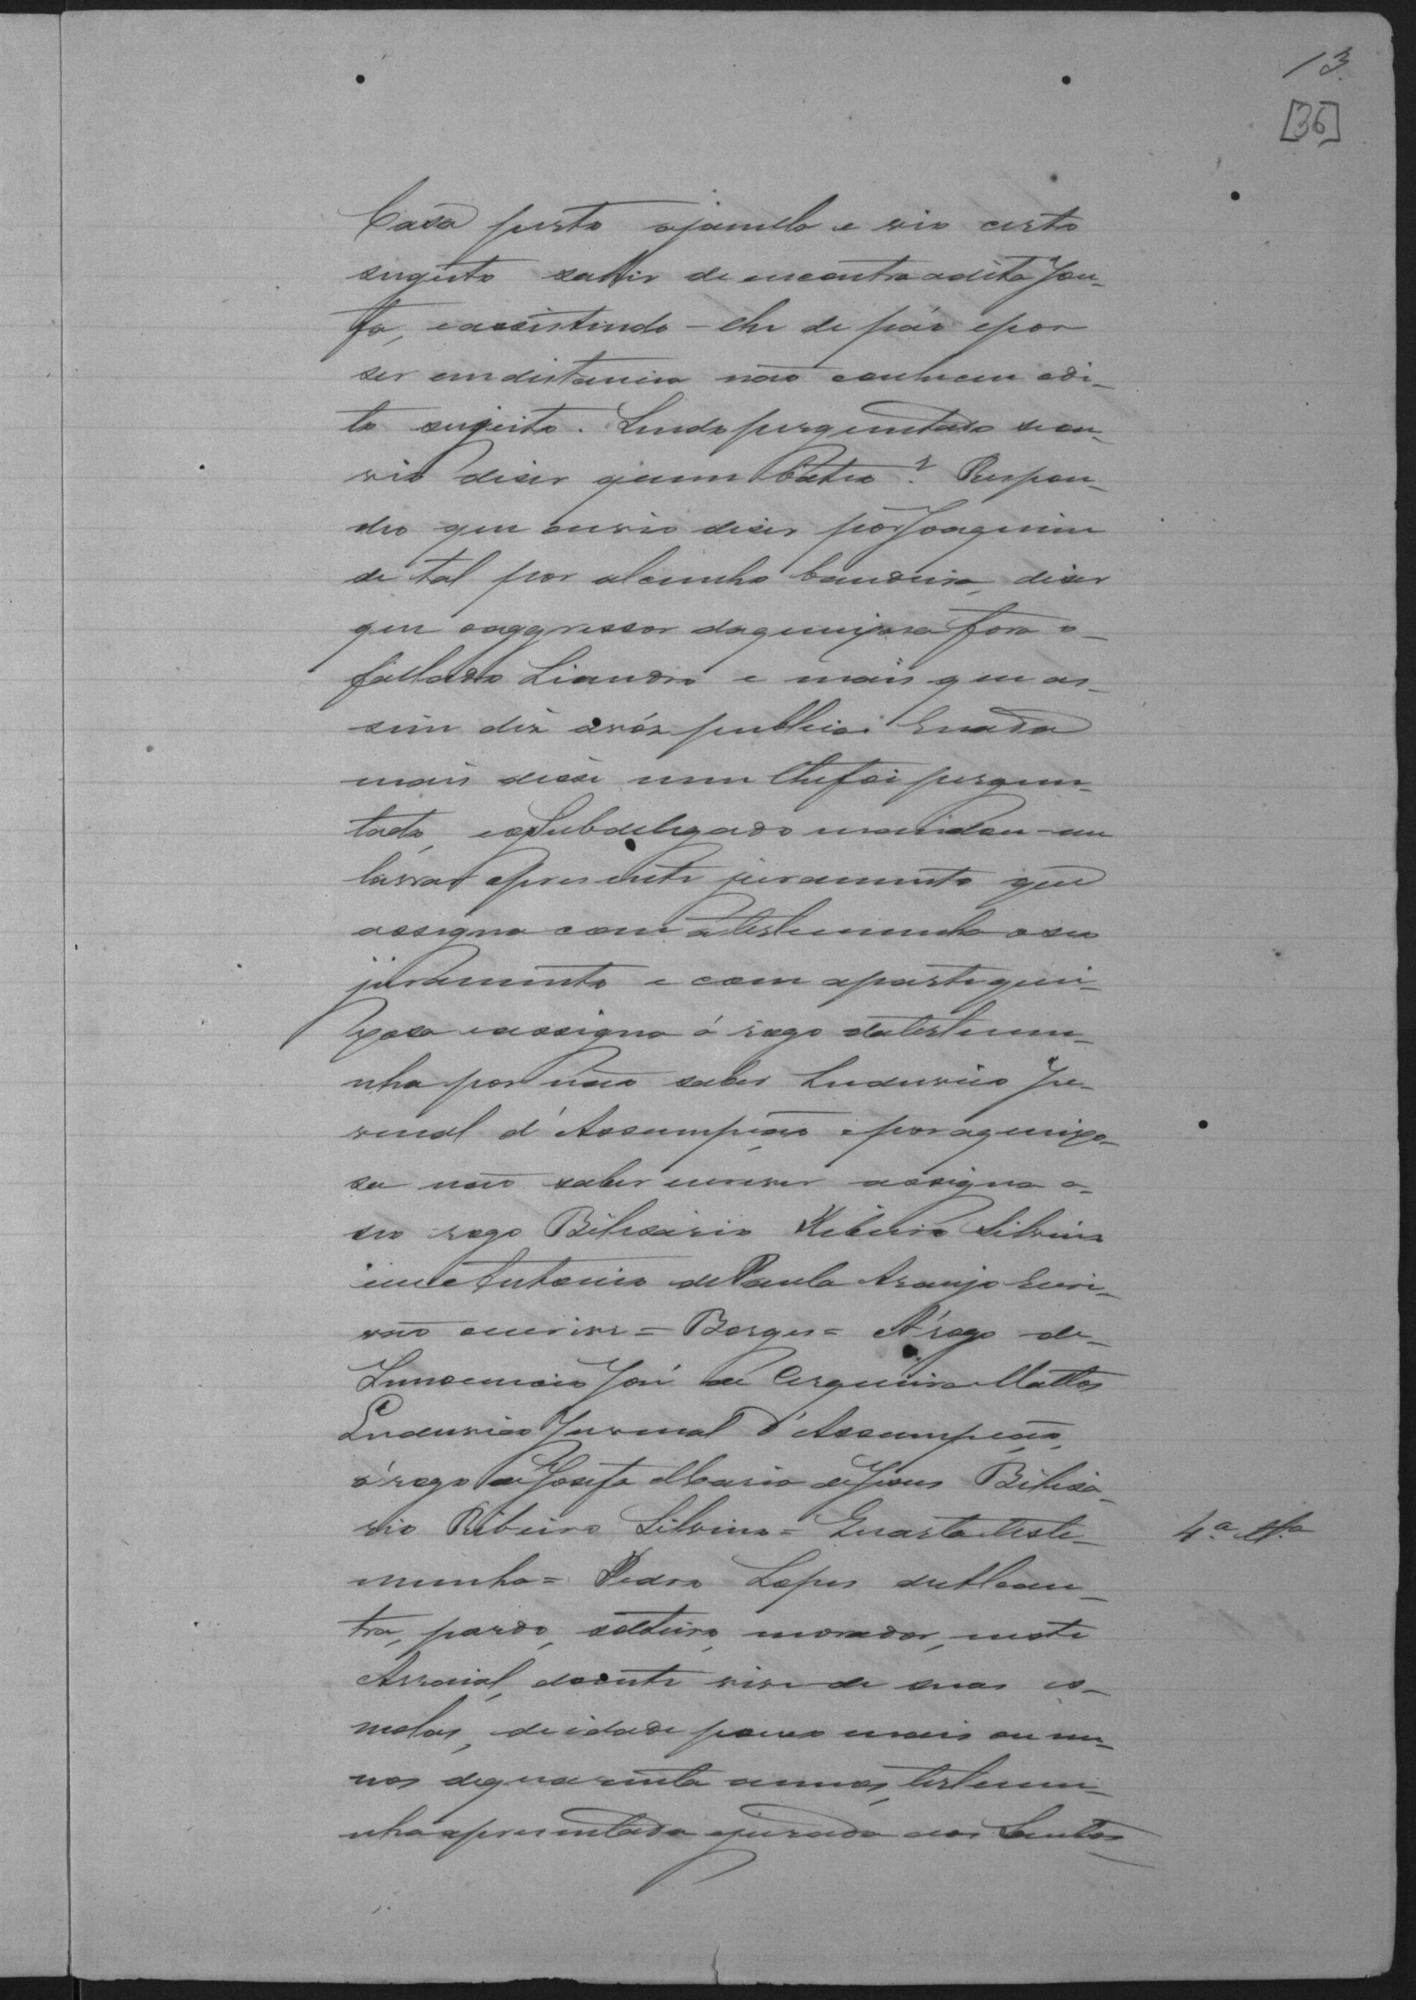 13
[36]
Casa perto ajanella e vio certo
sugeito sahir de encontro adita Jose-
fa, eassistindo-lhe de páo epor
ser emdistancia não conheceu odi-
to sugeito. Sendo perguntado seou-
vio diser quem batera? Respon-
deo que ouvio diser por Joaquim
de tal por alcunha bandeira, diser
que oaggressor daqueixosa fora o
fallado Liandro e mais que as-
sim diz avóz publica. Enada
mais disse nem lhefoi pergun-
tado, eoSubdelegado mandou-me
lavrar opresente juramento que
assigna com atestemunha oseo
juramento e com aparte quei-
xosa eassigna á rogo datestemu-
nha por não saber Ludurico Ju-
venal d'Assumpção eporaqueixo-
sa não saber escrever assigna a
seo rogo Bilisario Ribeiro Silvino
eu Antonio de Paula Araujo Escri-
vão escrivi = Borges = A'rogo de
Innocencio José de Cerqueira Mattos
Ludurico Juvenal d'Assumpção,
á rogo de Josefa Maria de Jesus Bilisa-
rio Ribeiro Silvino = Quarta teste-
munha = Pedro Lopes de Alcan-
tra, pardo, solteiro, morador, neste
Arraial, doente vive de suas es-
molas, de idade pouco mais ou me-
nos dequarenta annos, testemu-
nha apresentada ejurada aos Santos
4.ª Tt.ª